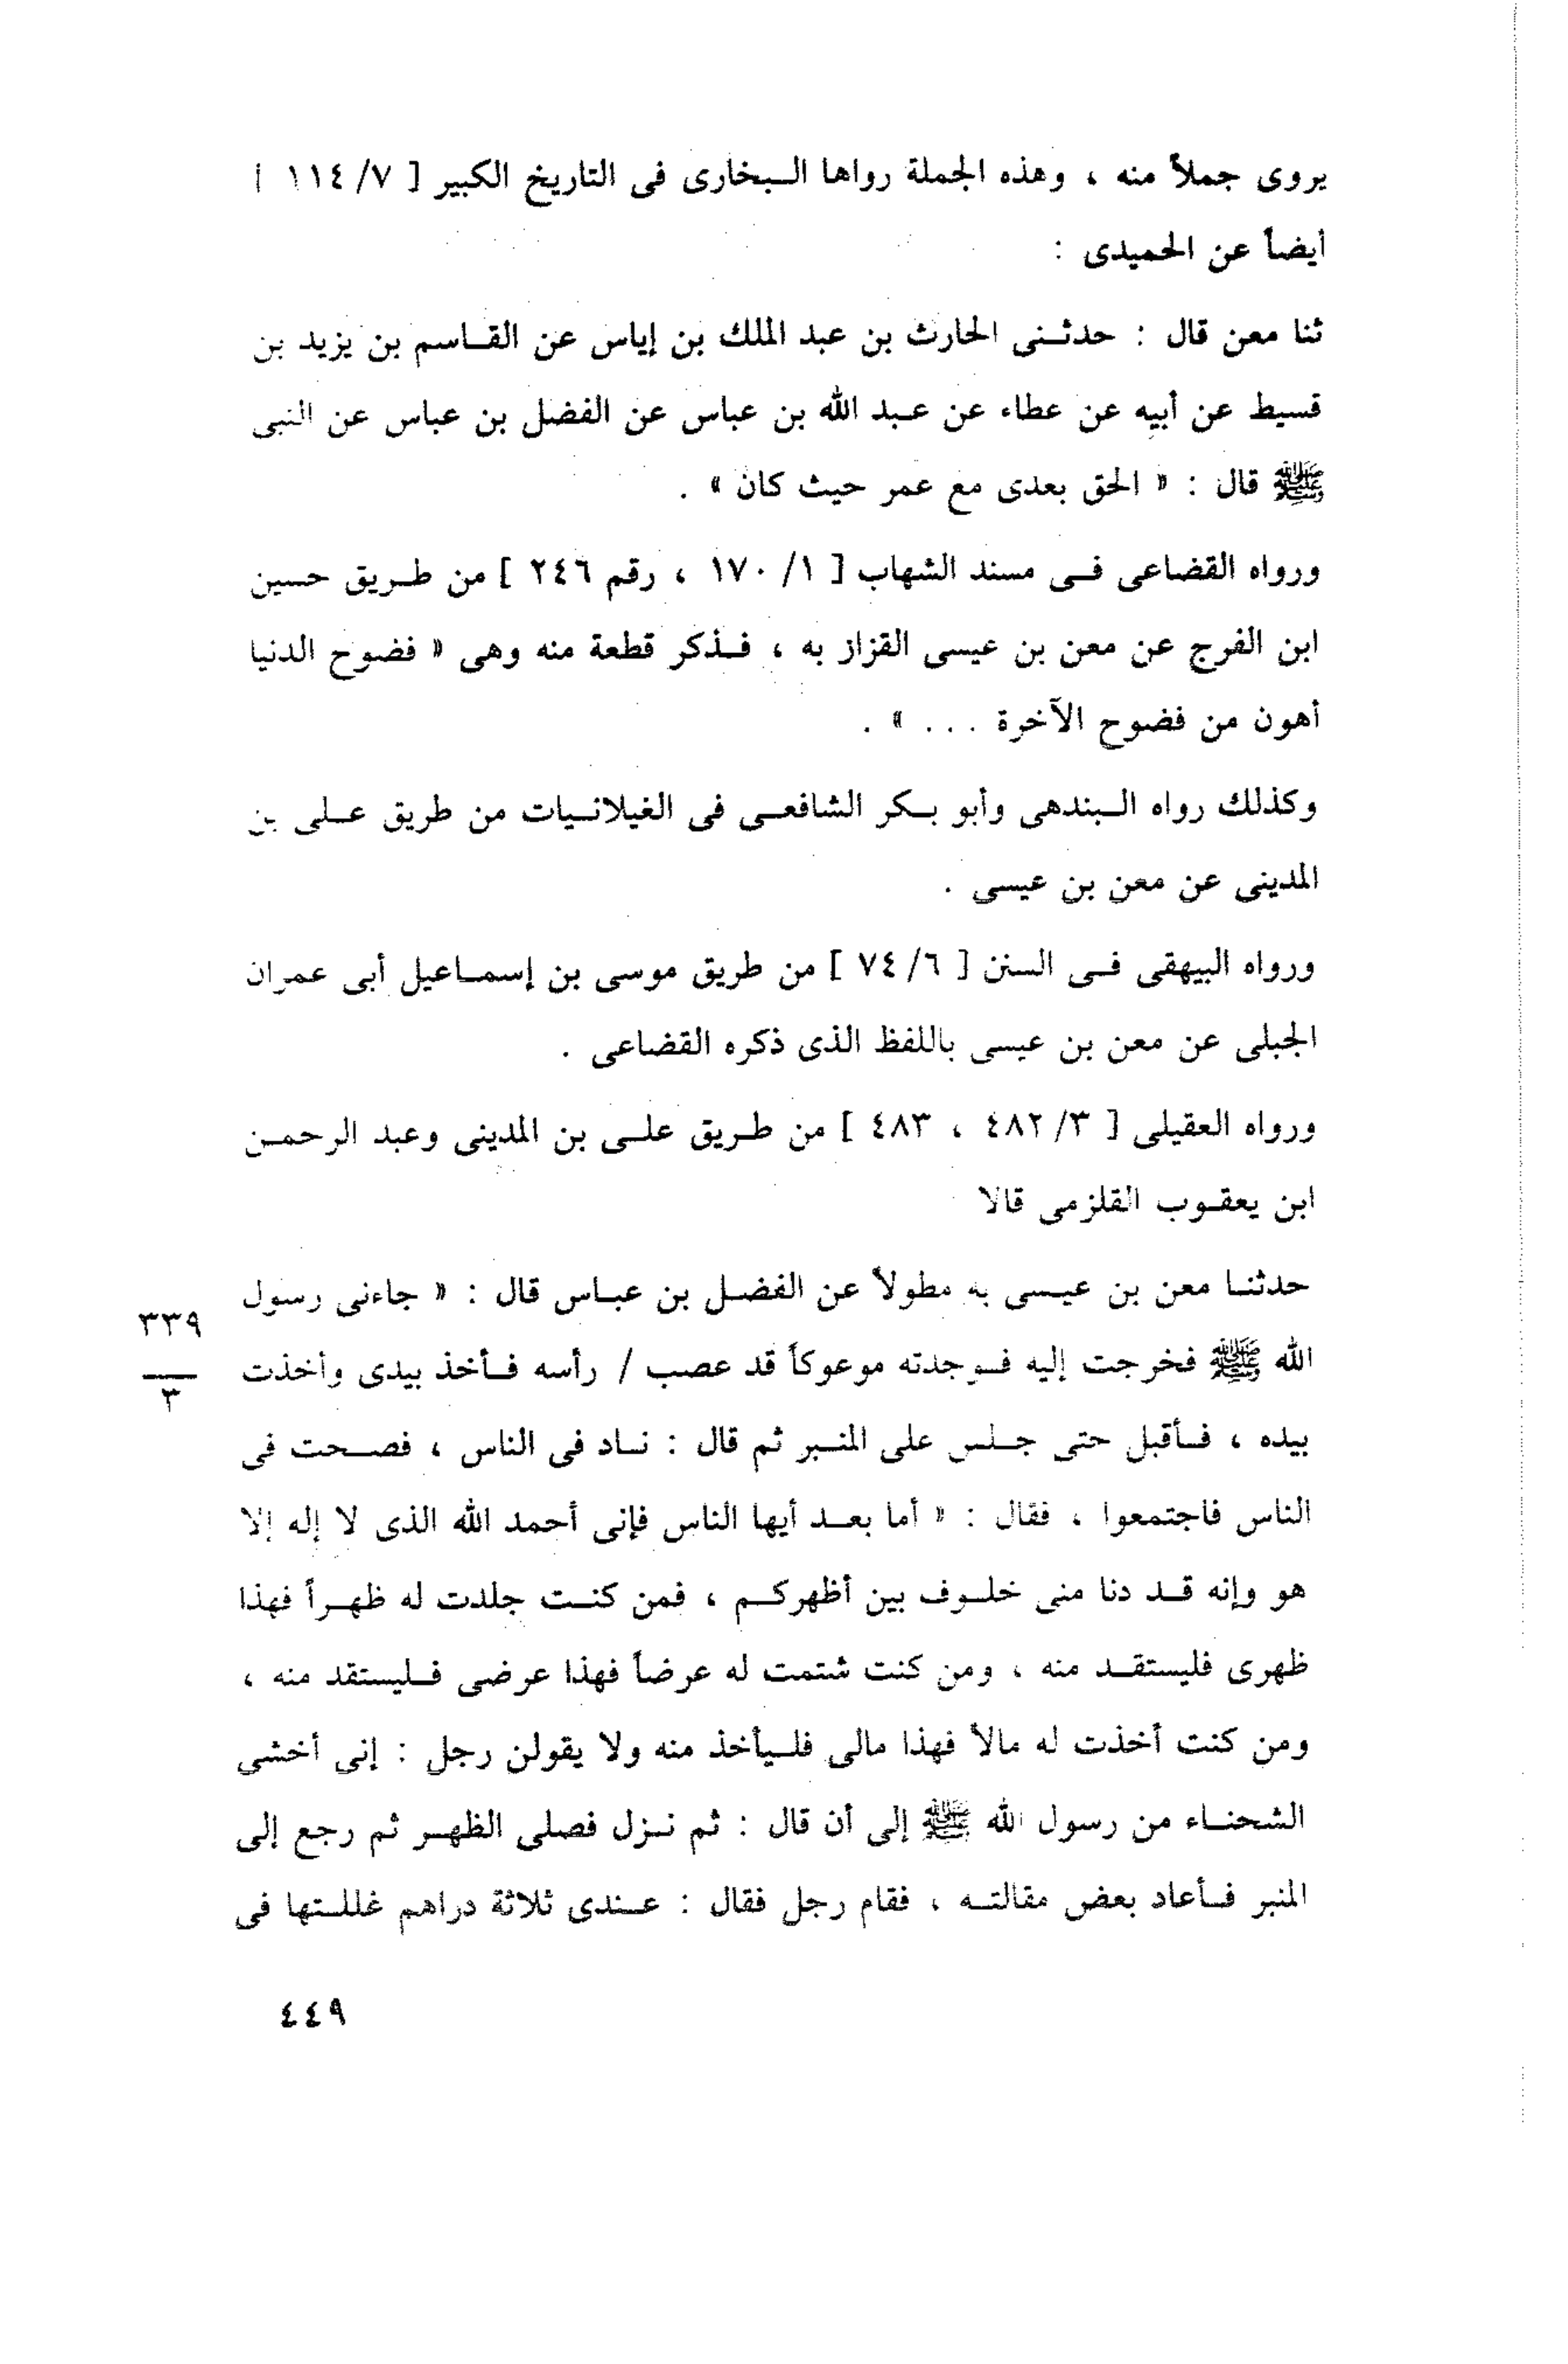 يروى جملاً منه ، وهذه الجملة رواها البخارى فى التاريخ الكبير [ ٧/ ١١٤ أ
أيضاً عن الحميدى :
ثنا معن قال : حدثنى الحارث بن عبد الملك بن إياس عن القاسم بن يزيد بن
قسيط عن أبيه عن عطاء عن عبد الله بن عباس عن الفضل بن عباس عن النبى
ﷺ قال : « الحق بعدى مع عمر حيث كان » .
ورواه القضاعى فى مسند الشهاب [ ١/ ١٧٠ ، رقم ٢٤٦ ] من طريق حسين
ابن الفرج عن معن بن عيسى القزاز به ، فذكر قطعة منه وهى « فضوح الدنيا
أهون من فضوح الآخرة . . . » .
وكذلك رواه البندهى وأبو بكر الشافعى فى الغيلانيات من طريق على بن
المدينى عن معن بن عيسى .
ورواه البيهقى فى السنن [ ٦/ ٧٤ ] من طريق موسى بن إسماعيل أبى عمران
الجبلى عن معن بن عيسى باللفظ الذى ذكره القضاعى .
ورواه العقيلى [ ٣/ ٤٨٢ ، ٤٨٣ ] من طريق على بن المدينى وعبد الرحمن
ابن يعقوب القلزمى قالا
حدثنا معن بن عيسى به مطولاً عن الفضل بن عباس قال : « جاءنى رسول
٣٣٩
الله ﷺ فخرجت إليه فوجدته موعوكاً قد عصب / رأسه فأخذ بيدى وأخذت
٣
بيده ، فأقبل حتى جلس على المنبر ثم قال : ناد فى الناس ، فصحت فى
الناس فاجتمعوا ، فقال : « أما بعد أيها الناس فإنى أحمد الله الذى لا إله إلا
هو وإنه قد دنا منى خلوف بين أظهركم ، فمن كنت جلدت له ظهراً فهذا
ظهرى فليستقد منه ، ومن كنت شتمت له عرضاً فهذا عرضى فليستقد منه ،
ومن كنت أخذت له مالاً فهذا مالى فليأخذ منه ولا يقولن رجل : إنى أخشى
الشحناء من رسول الله ﷺ إلى أن قال : ثم نزل فصلى الظهر ثم رجع إلى
المنبر فأعاد بعض مقالته ، فقام رجل فقال : عندى ثلاثة دراهم غللتها فى
٤٤٩